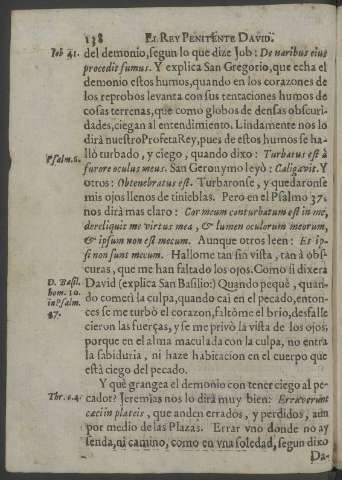 138 EL REY PENITENTE DAVID.
Iob 41. del demonio, segun lo que dize Job: De naribus eius
procedit fumus. Y explica San Gregorio, que echa el
demonio estos humos, quando en los corazones de
los reprobos levanta con sus tentaciones humos de
cosas terrenas, que como globos de densas obscuri-
dades, ciegan al entendimiento. Lindamente nos lo
dirà nuestro Profeta Rey, pues de estos humos se ha-
Psalm. 6. llò turbado, y ciego, quando dixo: Turbatus est à
furore oculus meus. San Geronymo leyò: Caligavit. Y
otros: Obtenebratus est. Turbaronse, y quedaronse
mis ojos llenos de tinieblas. Pero en el Psalmo 37.
nos dirà mas claro: Cor meum conturbatum est in me,
dereliquit me virtus mea, & lumen oculorum meorum,
& ipsum non est mecum. Aunque otros leen: Et ip-
si non sunt mecum. Hallome tan sin vista, tan à obs-
curas, que me han faltado los ojos. Como si dixera
D. Basil. David (explica San Basilio:) Quando pequè, quan-
hom. 10. do cometì la culpa, quando caì en el pecado, enton-
in Psalm. ces se me turbò el corazon, faltòme el brio, desfalle
37. cieron las fuerças, y se me privò la vista de los ojos;
porque en el alma maculada con la culpa, no entra
la sabiduria, ni haze habitacion en el cuerpo que
està ciego del pecado.
Y què grangea el demonio con tener ciego al pe-
Thr. c. 4. cador? Jeremias nos lo dirà muy bien: Erraverunt
cæci in plateis, que anden errados, y perdidos, aun
por medio de las Plazas. Errar vno donde no ay
senda, ni camino, como en vna soledad, segun dixo
Da-